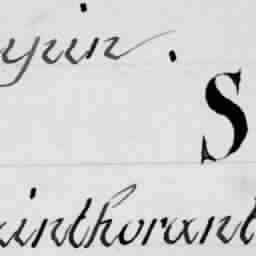 yin.
S
inthorant